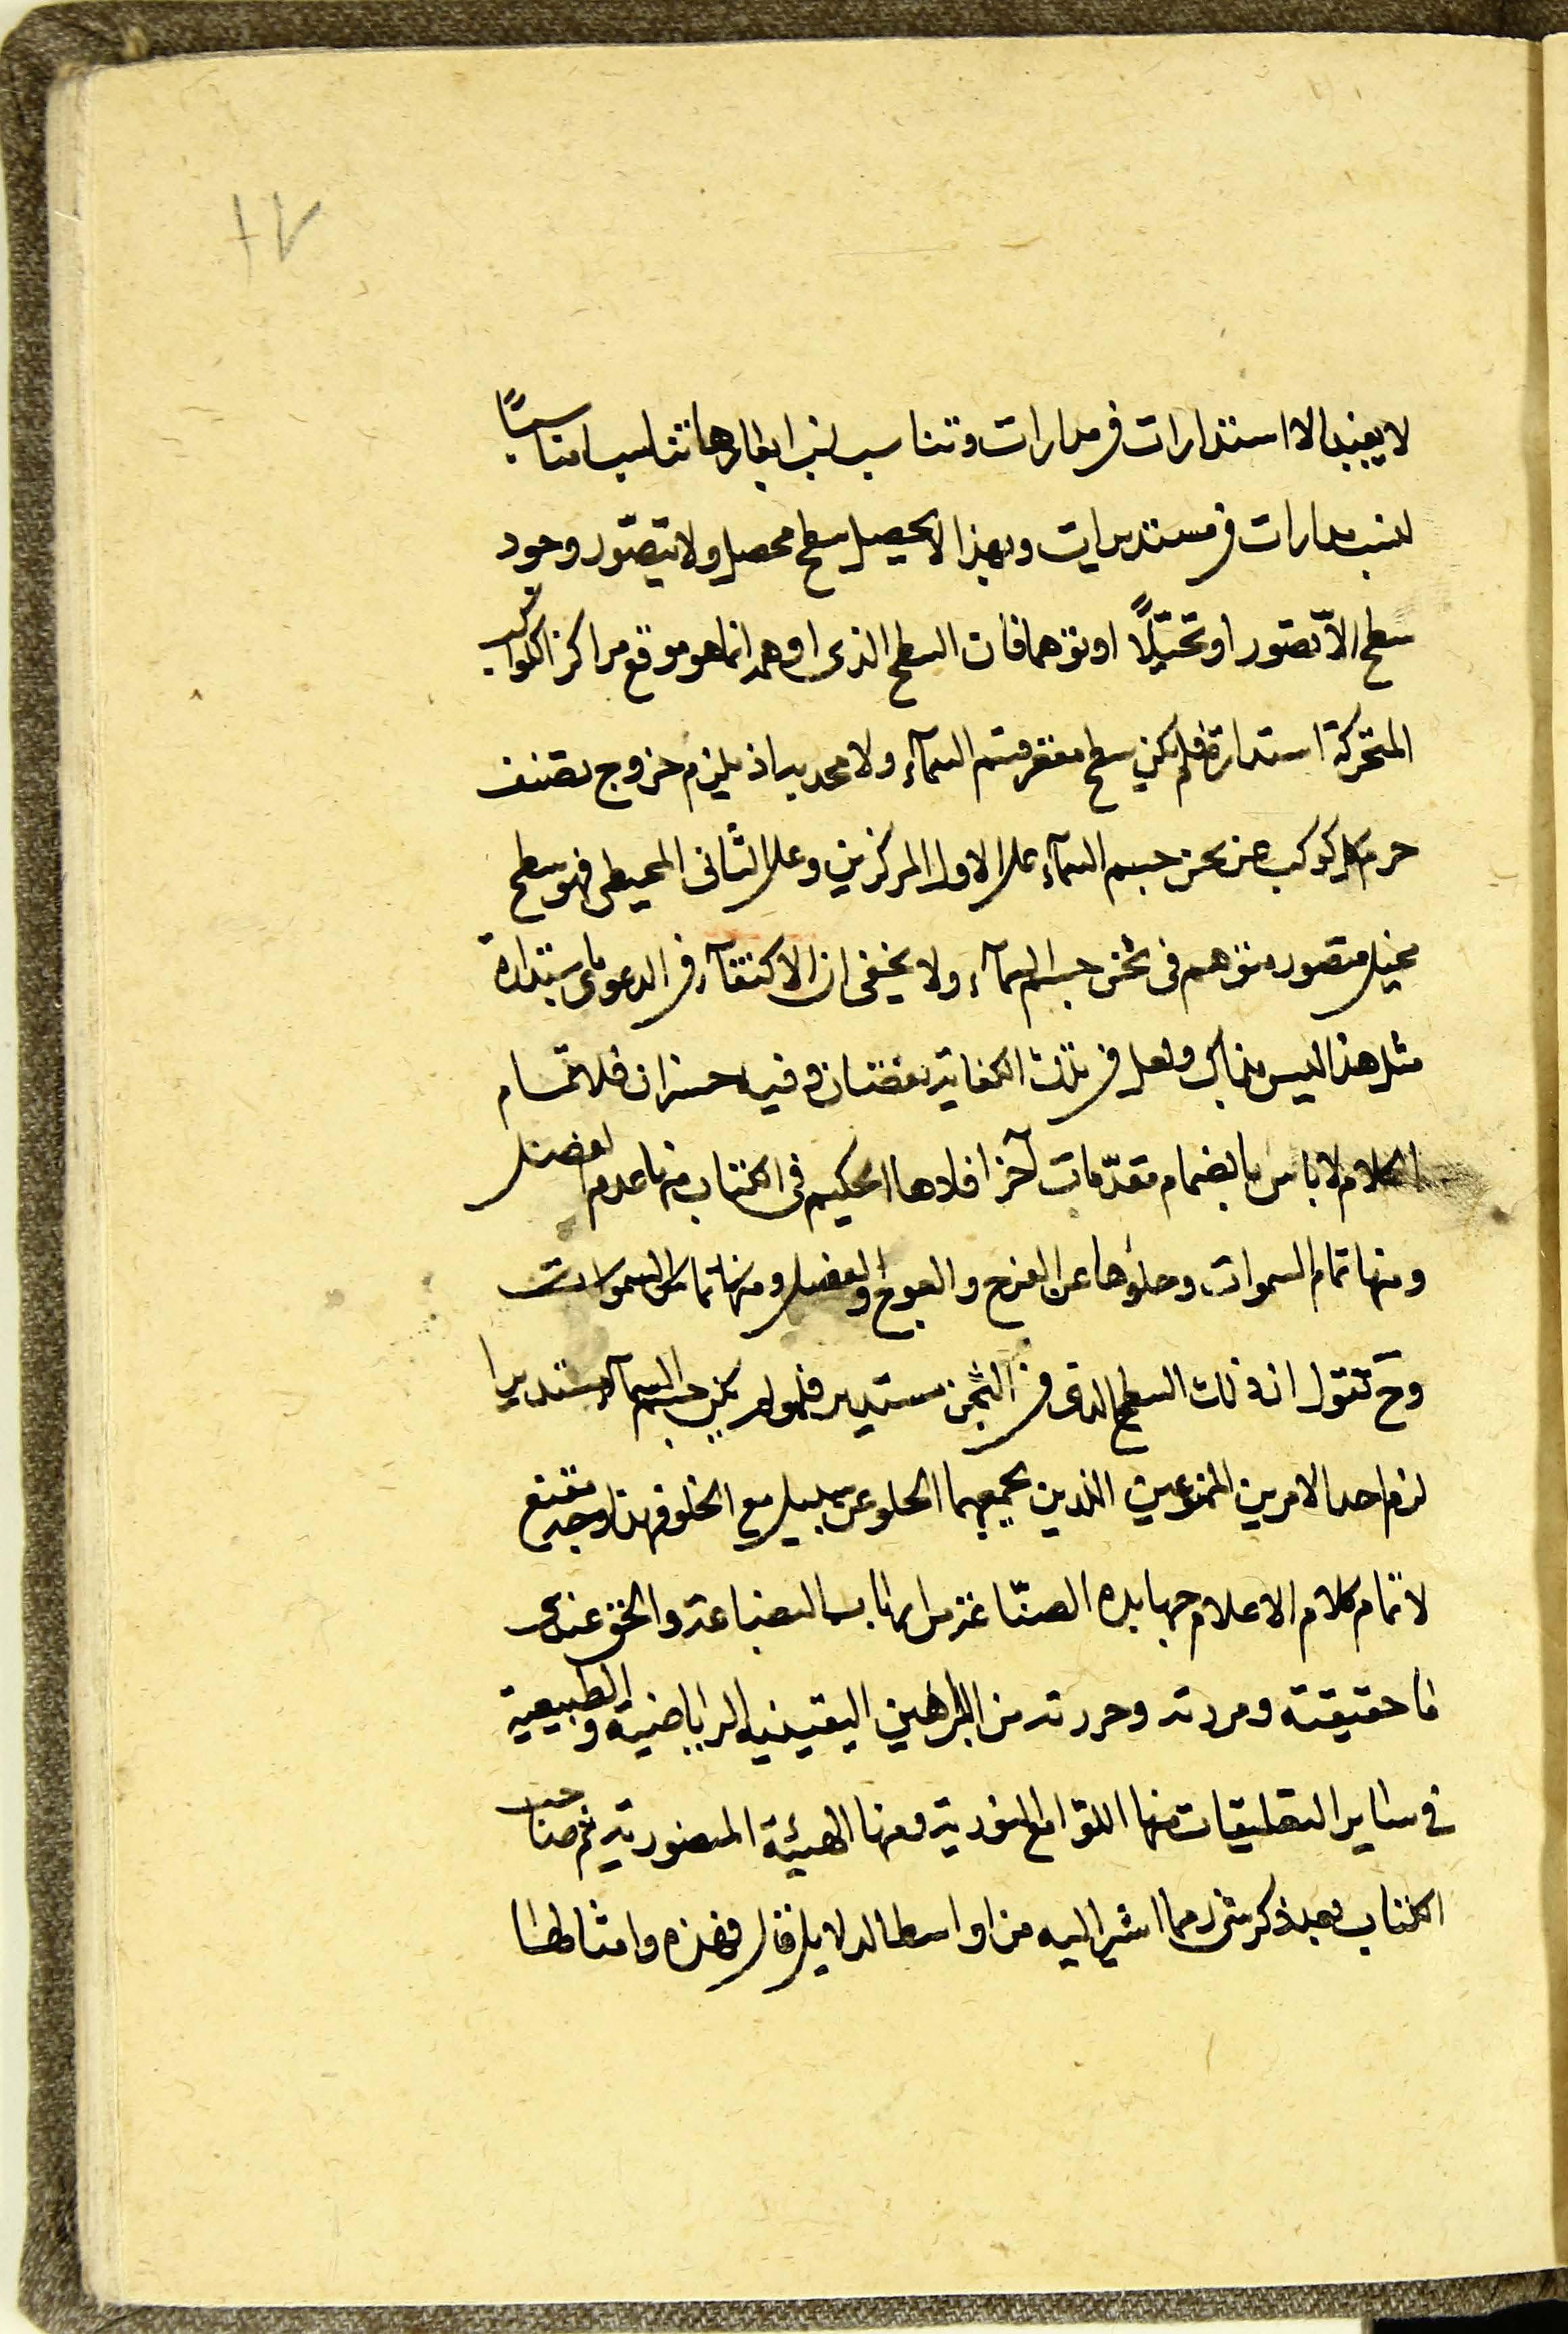 لا يفيد الا استدارات فى مدارات وتناسب نسب ابعادها تناسبا مناسبًا
لنسب مدارات فى مستديرات وبهذا لا يحصل سطح محصل ولا يتصور وجود
سطح الا تصور او تخيّلًا او توهما فان السطح الذى اوهمه انما هو موقع مراكز الكواكب
المتحركة استدارة فلم يكن سطح مقعر متمم السمآء ولا محدبها اذ يلزم خروج نصف
جرم كل كوكب عن ثخن جسم السمآء على الاول المركزين وعلى الثانى المحيطى فهو سطح
مخيل متصور متوهم فى ثخن جسم السمآء ولا يخفى ان الاكتفآء فى الدعوى باستدارة
مثل هذا ليس بذاك ولعل فى تلك الكفاية نقصان وفيه خسران فلاتمام
الكلام لا باس بانضمام مقدّمات آخر افادها الحكيم فى الكتاب منها عدم الفضل
ومنها تمام السموات وخلوها عن الفرج والعوج والفضل ومنها تماس السموات
وح تقول ان ذلك السطح الذى فى الثخن مستدير فلو لم يكن جسم السمآء مستديرا
لزم احد الامرين الممنوعين الذين يجمعهما الخلو عن سبيل مع الخلو فهذا وجه مقنع
لاتمام كلام الاعلام جهابده الصنّاعة من ارباب البضاعة والحق عندى
ما حقيقته ومردته وحررته من البراهين اليقينيه الرياضية والطبيعية
فى ساير التعليقات منها اللوامع النورية ومنها الهيئة المنصورية ثم صاحب
الكتاب بعد ذكر شئ مما اشير اليه من اواسط الدلايل قال فهذه وامثالها